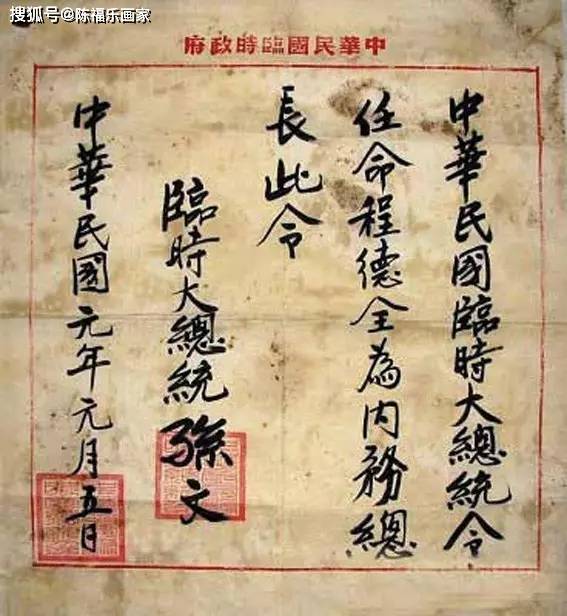 搜狐号@陈福乐画家
中華民國臨時政府
中華民國臨時大總統令
任命程德全為内務總
長此令
臨時大總統孫文
中華民國元年元月五日